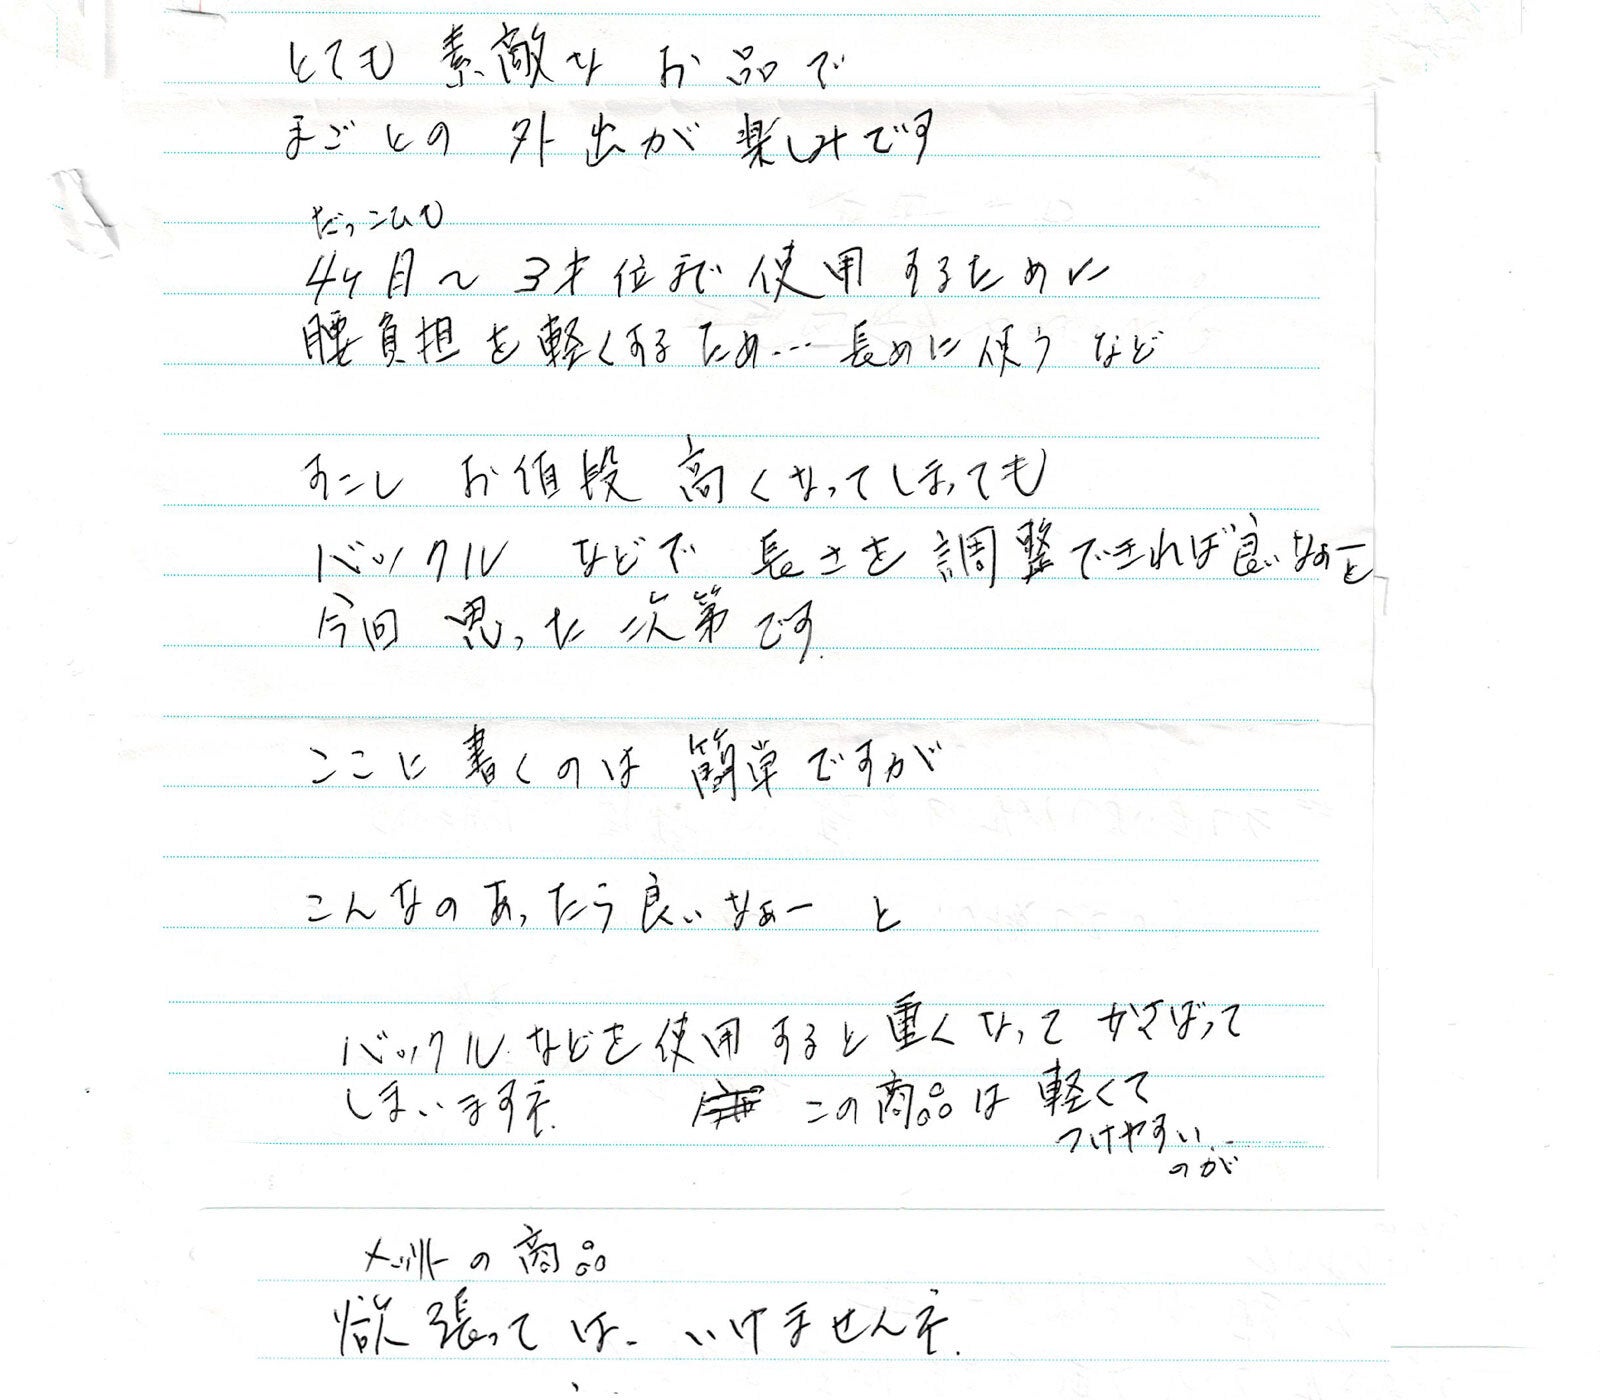 とても 素敵な お品で
まごとの 外出が 楽しみです
だっこひも
4ヶ月〜 3才位まで 使用するために
腰負担を軽くするため… 長めに使う など
すこし お値段 高くなってしまっても
バックル などで 長さを調整できれば良いなぁーと
今回 思った次第です.
ここに書くのは簡単ですが
こんなのあったら良いなぁー と
バックルなどを使用すると重くなって かさばって
しまいますネ. この商品は軽くて
つけやすい..
のが
メリットの商品
欲張っては いけませんネ.